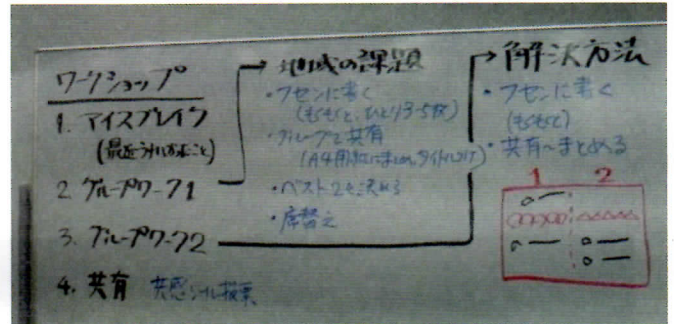 ワークショップ
1. アイスブレイク
(最近うれしかったこと)
2. グループワーク1
3. グループワーク2
4. 共有 共感シール投票
→ 地域の課題
・フセンに書く
(もくもくと、ひとり3-5枚)
・グループで共有
(A4用紙にまとめ、タイトルつけ)
・ベスト2を決める
・席替え
→ 解決方法
・フセンに書く
(もくもくと)
・共有〜まとめる
1 2